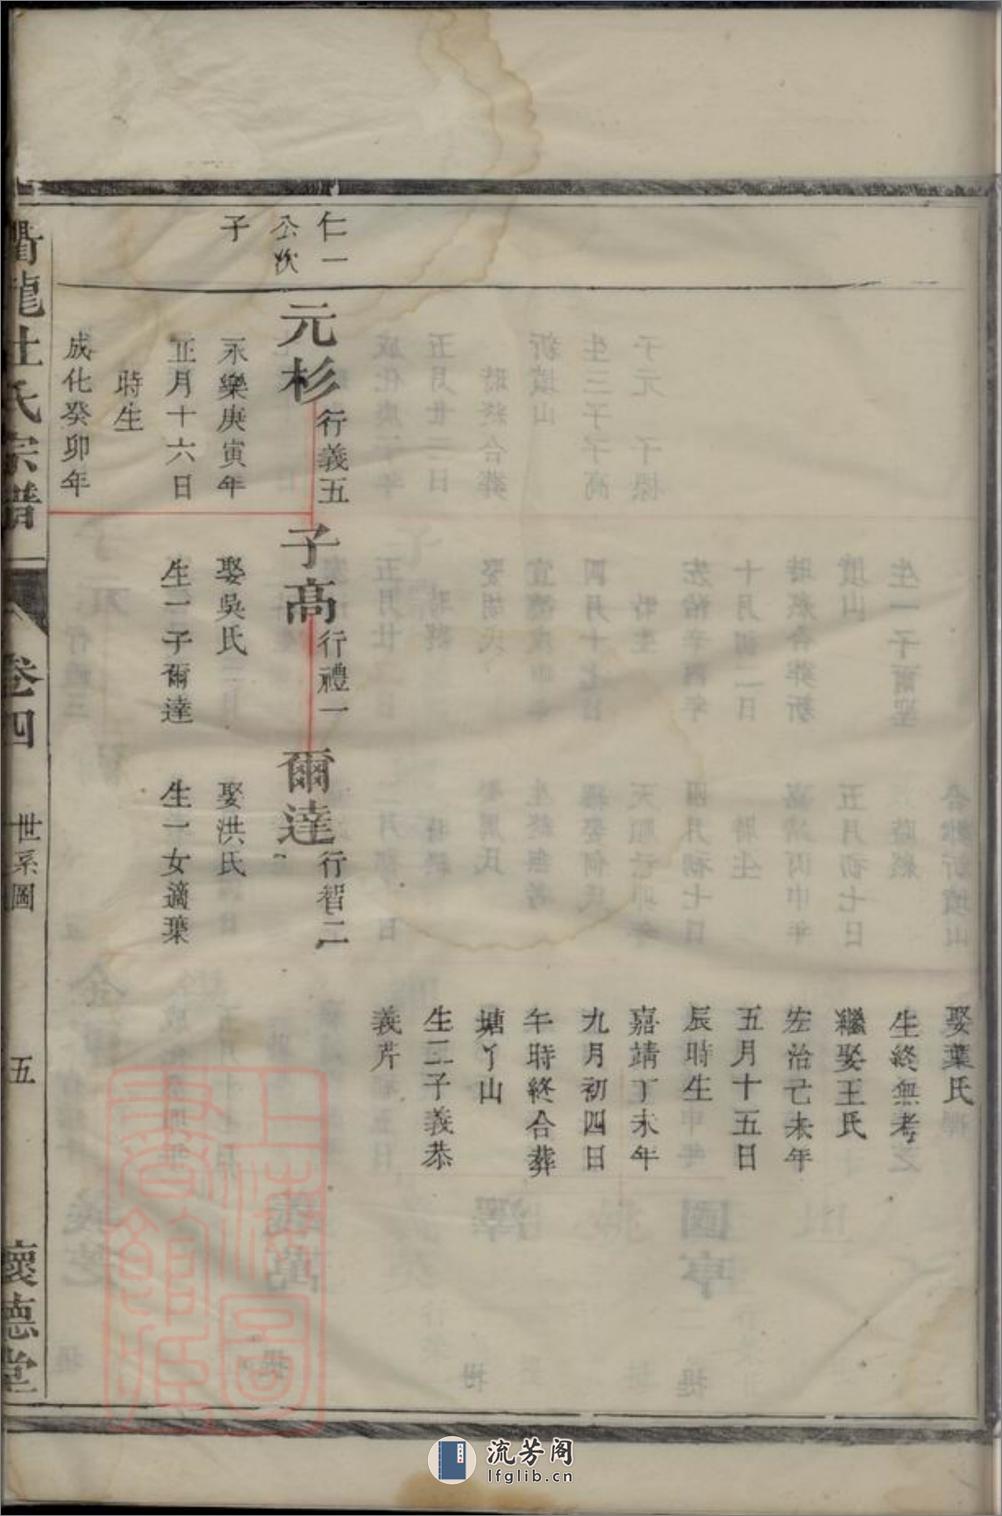 娶葉氏
生終無考
繼娶王氏
宏治己未年
五月十五日
辰時生
嘉靖丁未年
九月初四日
午時終合葬
塘丫山
生二子義恭
義芹
仁一
公次
子
元杉 行義五
永樂庚寅年
正月十六日
時生
成化癸卯年
子高 行禮一
娶吳氏
生一子爾達
爾達 行智二
娶洪氏
生一女適葉
衢龍杜氏宗譜
卷四
世系圖
五
懷德堂
上海圖書館藏
流芳阁
lfglib.cn